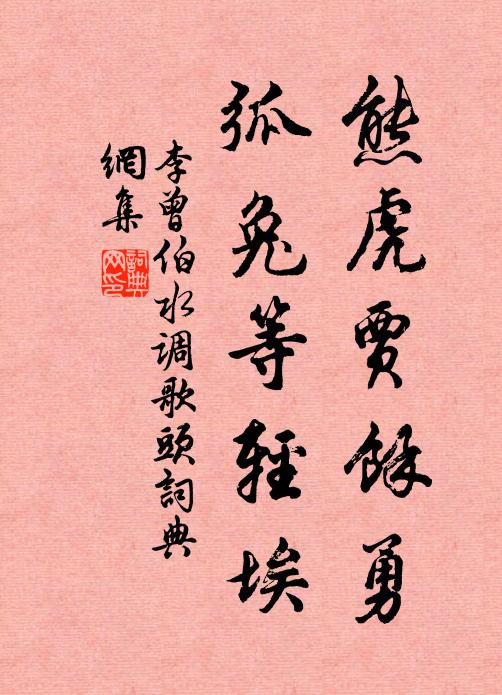 熊虎賈餘勇
狐兔等輕埃
李曾伯水调歌頭詞典
網集
詞典網印